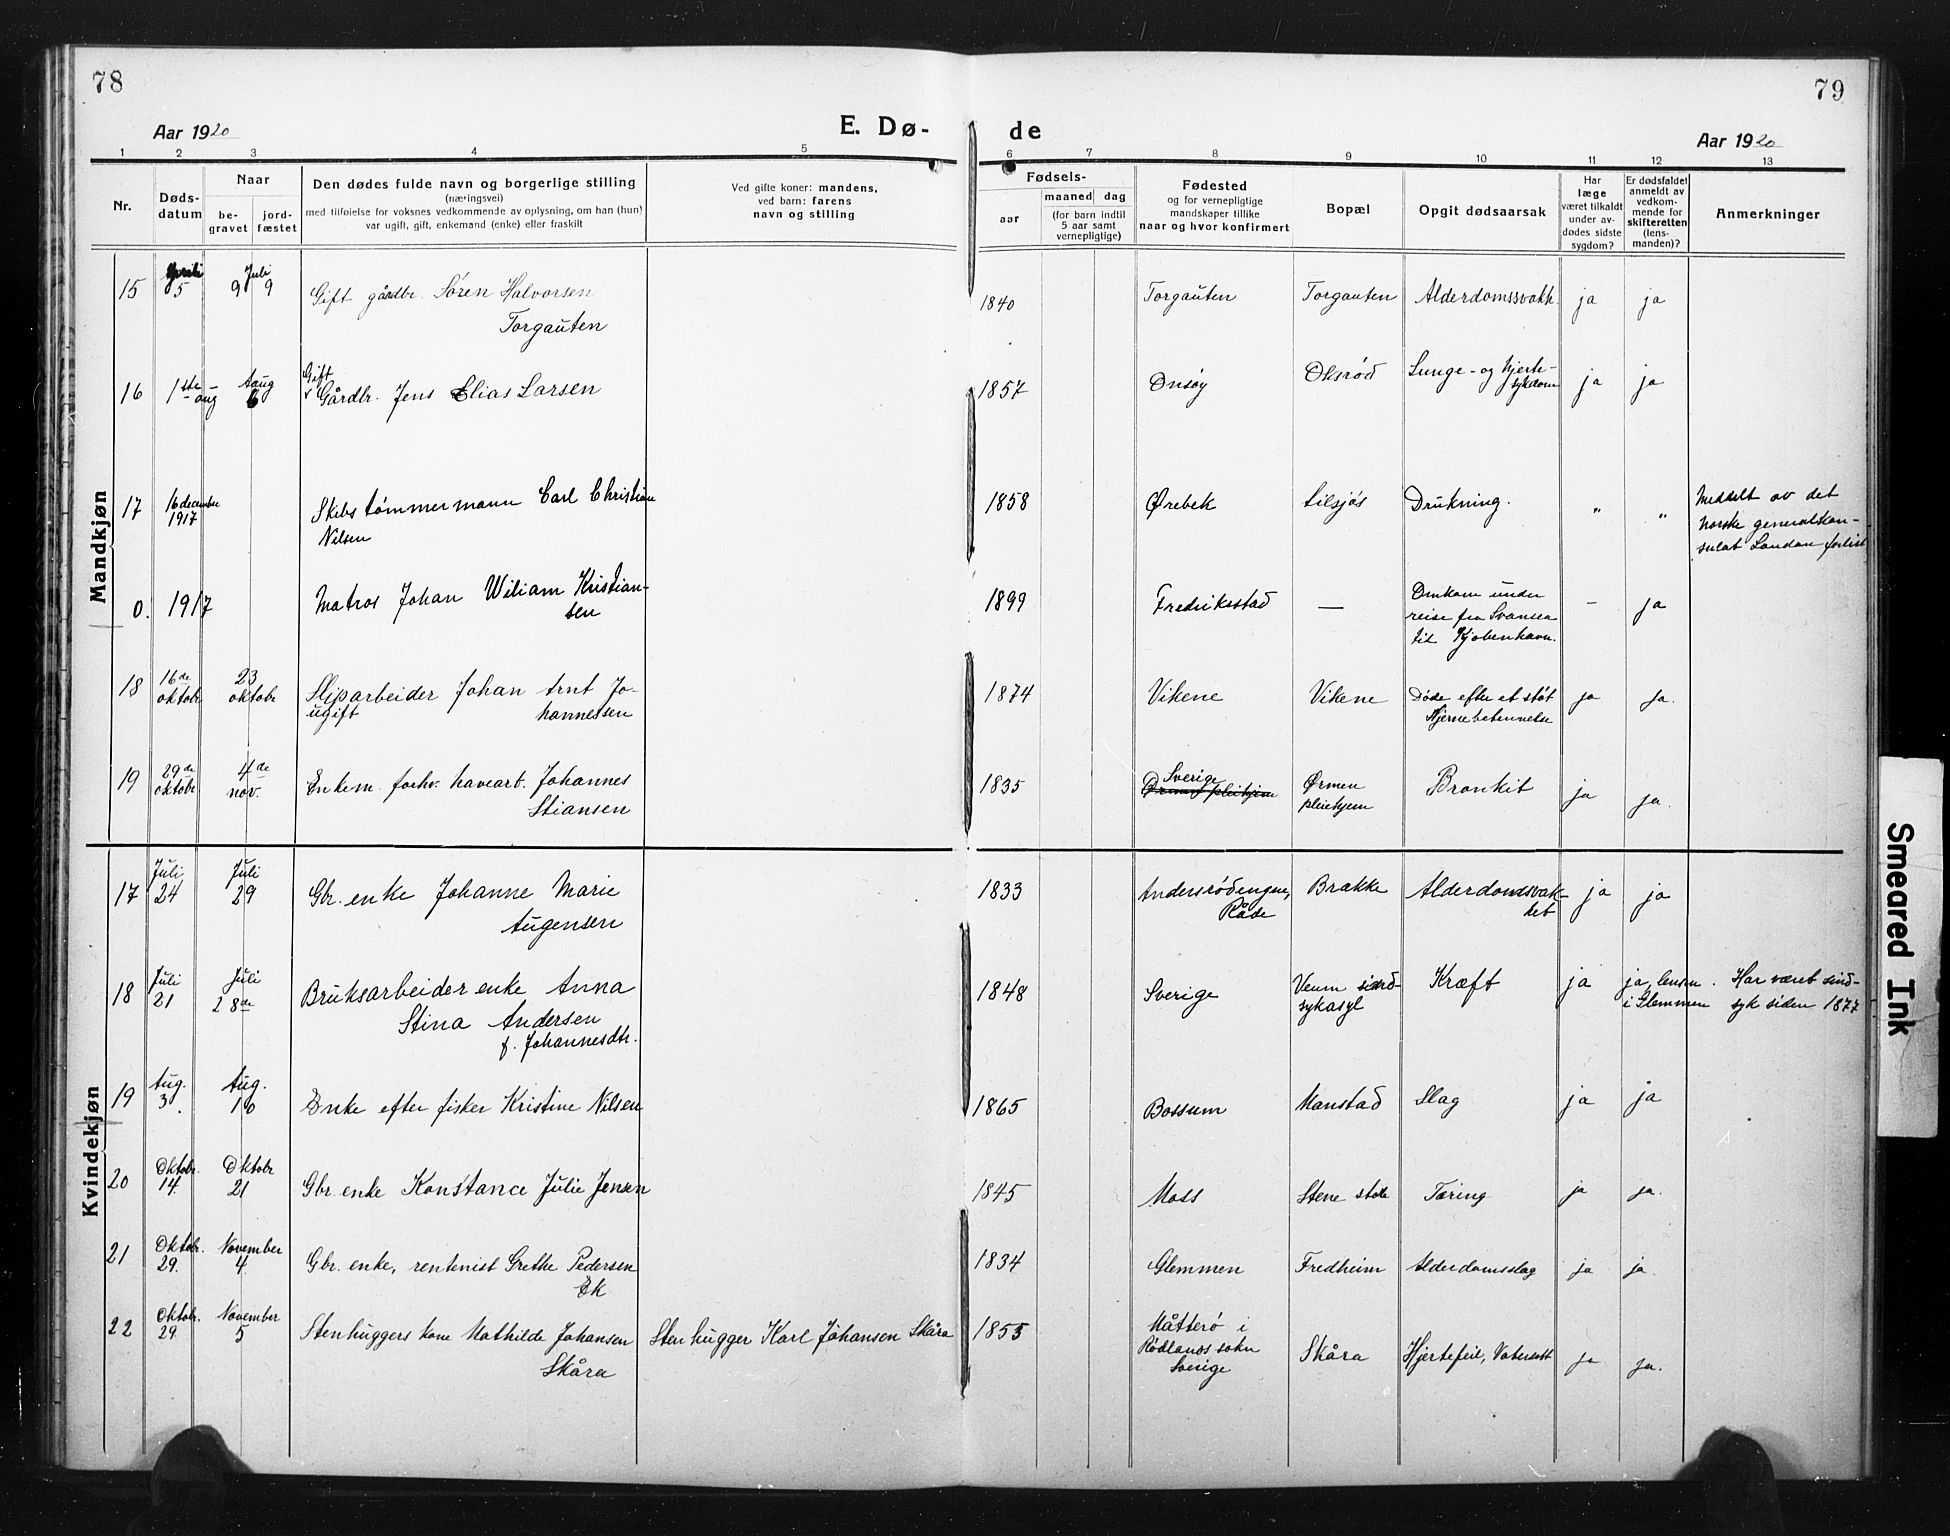 78
79
Aar 1920
E. Dø-
de
Aar 1920
1 2 3 4 5 6 7 8 9 10 11 12 13
Nr.
Døds-
datum
Naar
be-
gravet
jord-
fæstet
Den dødes fulde navn og borgerlige stilling
(næringsvei)
med tilføielse for voksnes vedkommende av oplysning, om han (hun)
var ugift, gift, enkemand (enke) eller fraskilt
Ved gifte koner: mandens,
ved barn: farens
navn og stilling
Fødsels-
aar
maaned dag
(for barn indtil
5 aar samt
vernepligtige)
Fødested
og for vernepligtige
mandskaper tillike
naar og hvor konfirmert
Bopæl
Opgit dødsaarsak
Har
læge
været tilkaldt
under av-
dødes sidste
sygdom?
Er dødsfaldet
anmeldt av
vedkom-
mende for
skifteretten
(lens-
manden)?
Anmerkninger
Mandkjøn
15
5
Juli
9 9
Gift gårdbr. Søren Halvorsen
Torgauten
1840
Torgauten
Torgauten
Alderdomssvakh.
ja
ja
16
1ste
aug
Aug
6
Gift
Gårdbr. Jens Elias Larsen
1857
Onsøy
Oksrød
Lunge- og hjerte-
sykdom
ja
ja
17
16 december
1917
Skibstømmermann Carl Christian
Nilsen
1858
Ørebek
Lilsjøs
Drukning.
"
"
Meddelt av det
norske generalkon-
sulat London forlist
0.
1917
Matros Johan Wiliam Kristian-
sen
1899
Fredrikstad
—
Omkom under
reise fra Svansea
til Kjøbenhavn.
-
ja
18
16de
oktobr
23
oktobr
Sliparbeider Johan Arnt Jo-
ugift hannessen
1874
Vikene
Vikene
Døde efter et støt
Hjernebetennelse
ja
ja.
19
29de
oktobr
4de
nov.
Enkem. forhv. havearb. Johannes
Stiansen
1835
Sverige
Ørmen pleihjem
Ørmen
pleiehjem
Bronkit
ja
ja.
Kvindekjøn
17
Juli
24
Juli
29
Gbr. enke Johanne Marie
Augensen
1833
Andersrødengen,
Råde
Brække
Alderdomsvak-
het
ja
ja
18
Juli
21
Juli
28de
Bruksarbeider enke Anna
Stina Andersen
f. Johannesdtr.
1848
Sverige
Veum sind-
sykasyl
Kræft
ja
ja, lensm.
i Glemmen
Har været sind-
syk siden 1877
19
Aug.
3.
Aug.
10
Enke efter fisker Kristine Nilsen
1865
Bossum
Manstad
Slag
ja
ja
20
Oktobr.
14.
Oktobr
21
Gbr. enke Konstance Julie Jensen
1845
Moss
Stene skole
Tæring
ja
ja.
21
Oktobr.
29.
November
4.
Gbr. enke, rentenist Grethe Pedersen
Ek
1834
Glemmen
Fredheim
Alderdomsslag
ja
ja.
22
Oktobr.
29
November
5
Stenhuggers kone Mathilde Johansen
Skåra
Stenhugger Karl Johansen Skåra
1855
Måtterø i
Rødlands sokn
Sverige
Skåra
Hjertefeil, Vatersott
ja
ja.
Smeared Ink